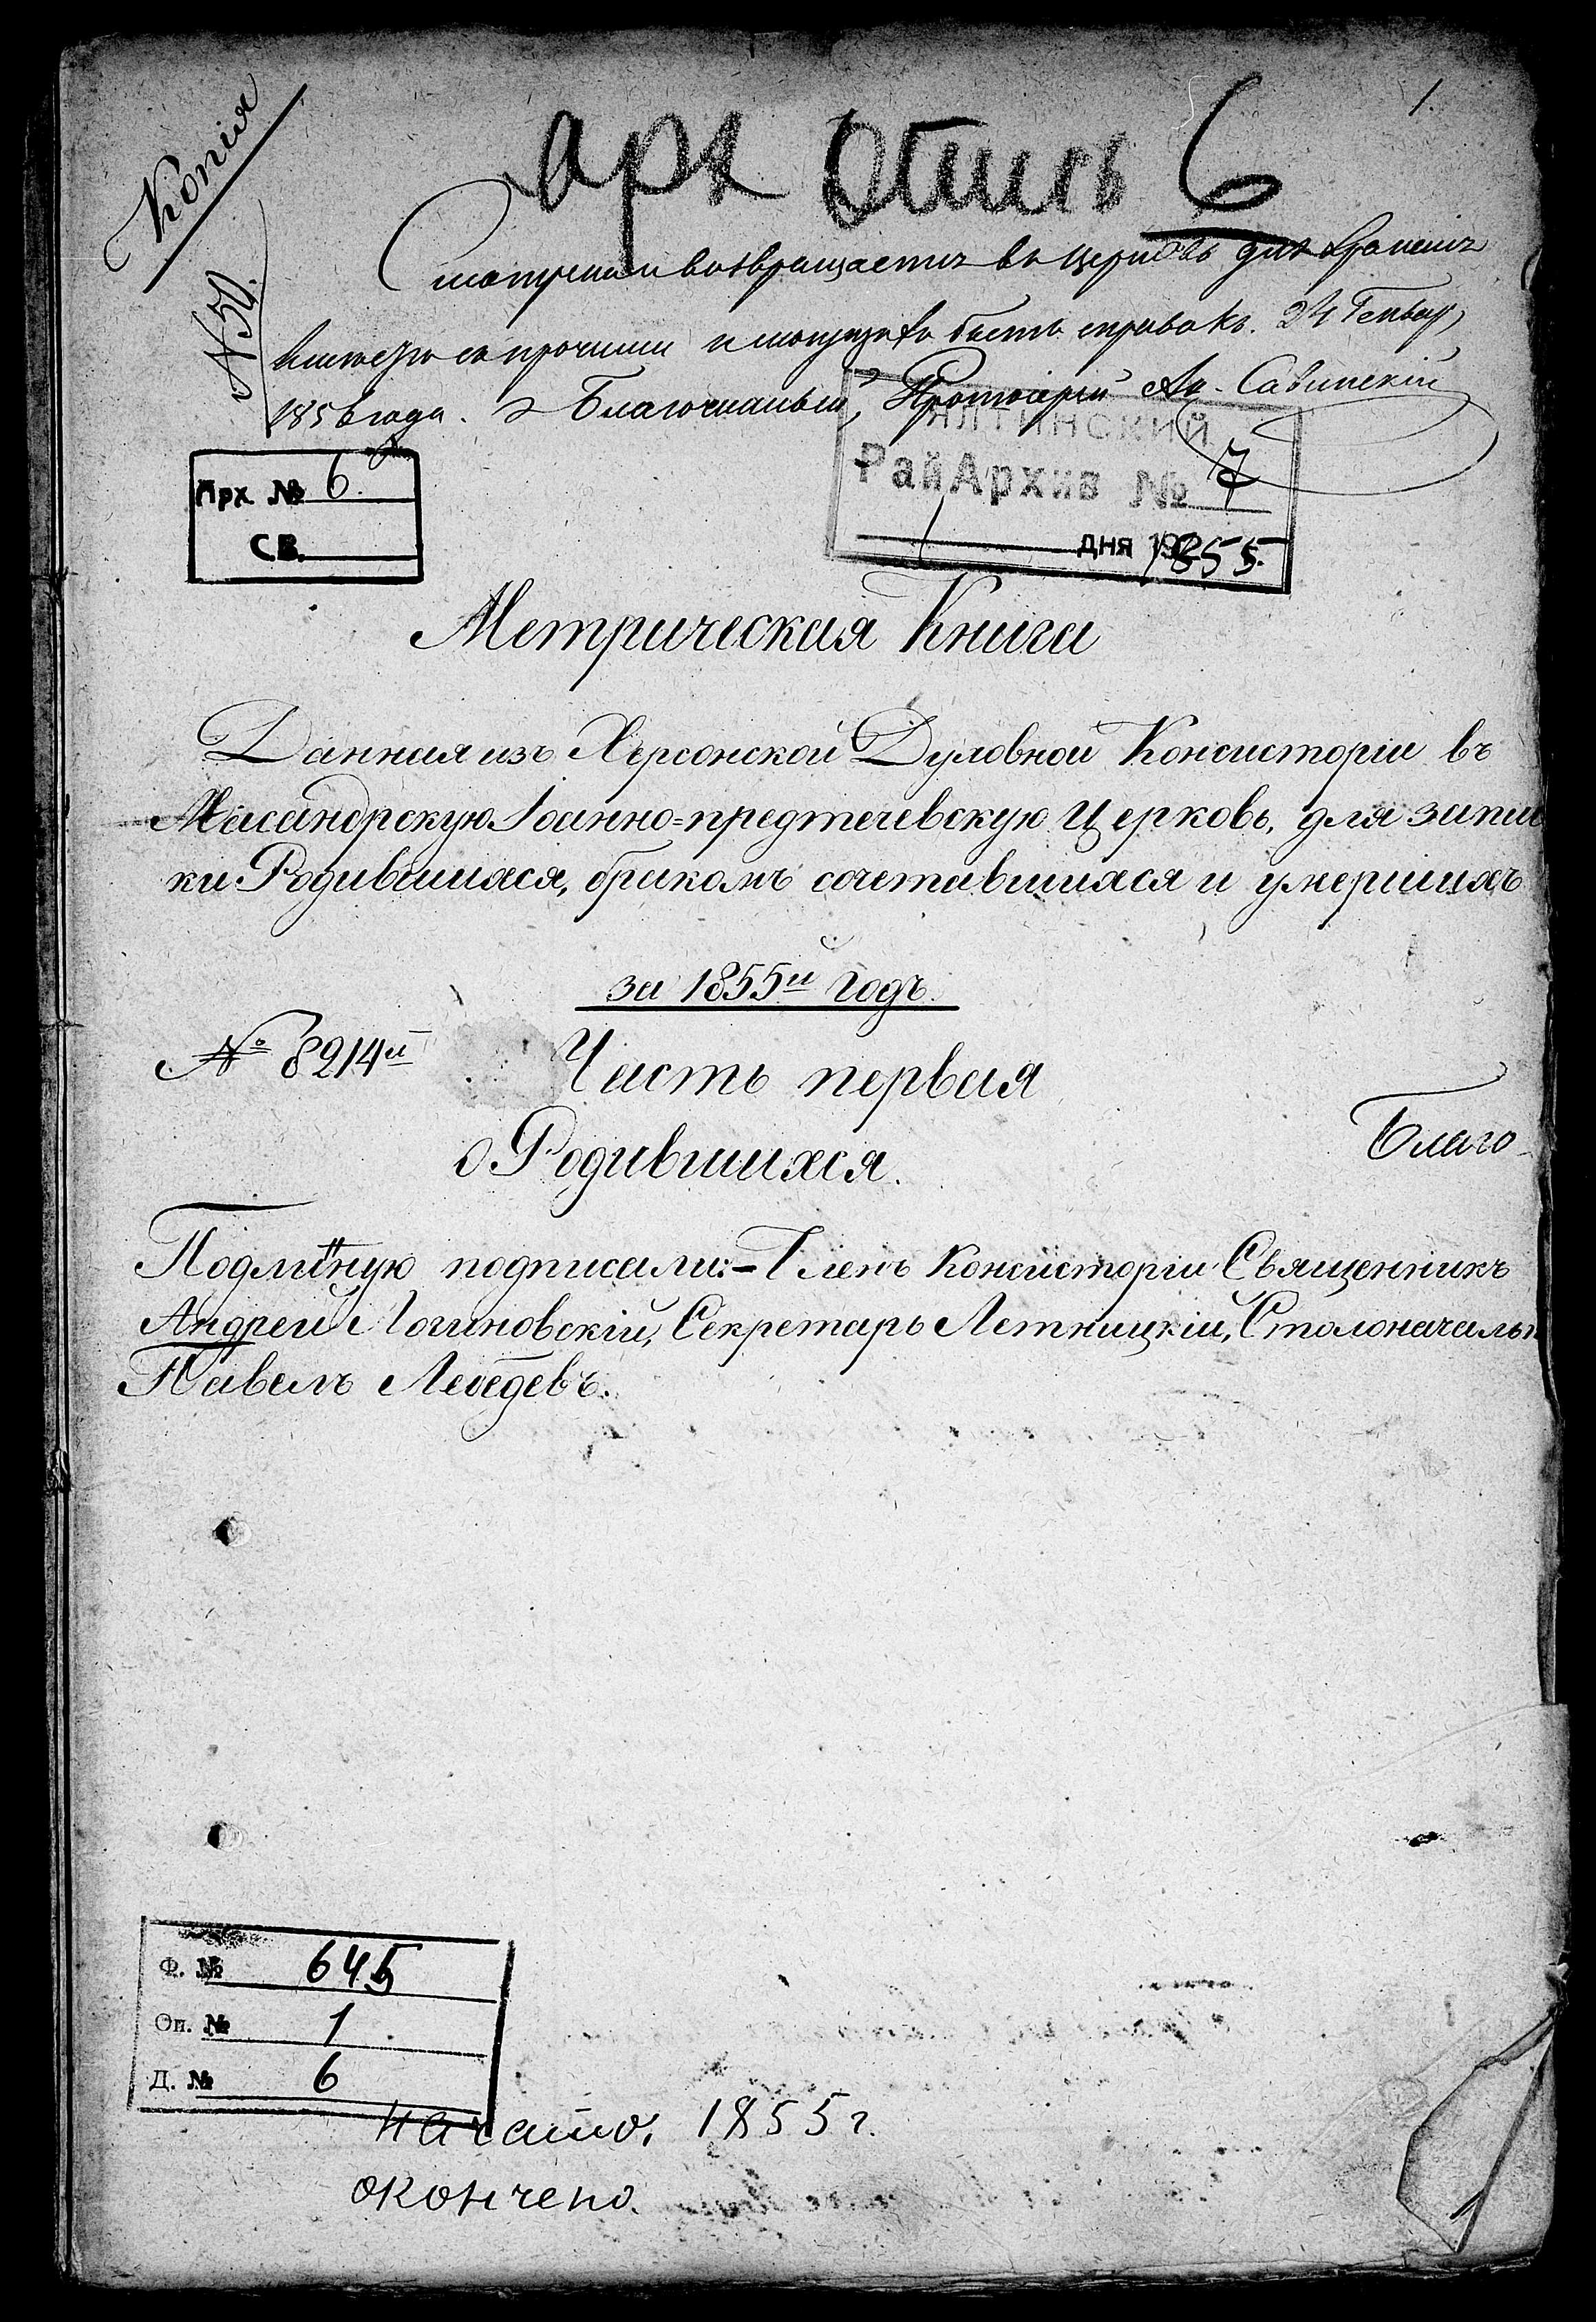 1.
Копія
арх опись 6
№ 50.
Смотрена и возвращается въ церковь для храненія
вместе съ прочими и могущихъ быть справокъ. 24 Генвар
1856 года. Благочинный, Протоіерей Ан. Савинскій
Арх № 6.
СВ.
ЯЛТИНСКИЙ
РайАрхив № 7
дня 1855.
Метрическая Книга
Данная изъ Херсонской Духовной Консисторіи въ
Масандрскую Іоанно=предтечевскую Церковь, для запис
ки Родившихся, бракомъ сочетавшихся и умершихъ
за 1855й годъ.
№ 8214й
Часть первая
о Родившихся.
Благо
Подлинную подписали:- Членъ Консисторіи Священникъ
Андрей Логиновскій, Секретарь Летницкій, Столоначальн
Павелъ Лебедевъ.
Ф. № 645
Оп. № 1
Д. № 6
начато, 1855 г.
окончено.